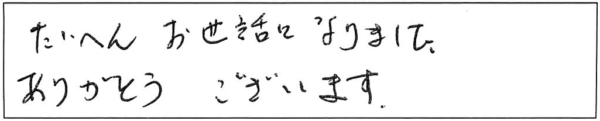 たいへん お世話に なりまして、
ありがとう ございます.